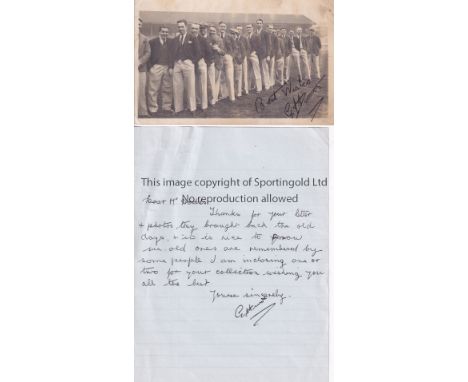 Best Wishes
This image copyright of Sportingold Ltd
No reproduction allowed
Dear Mr
Thanks for your letter
+ photos they brought back the old
days, + it is nice to know
us old ones are remembered by
some people I am inclosing one or
two for your collection wishing you
all the best
Yours sincerely.